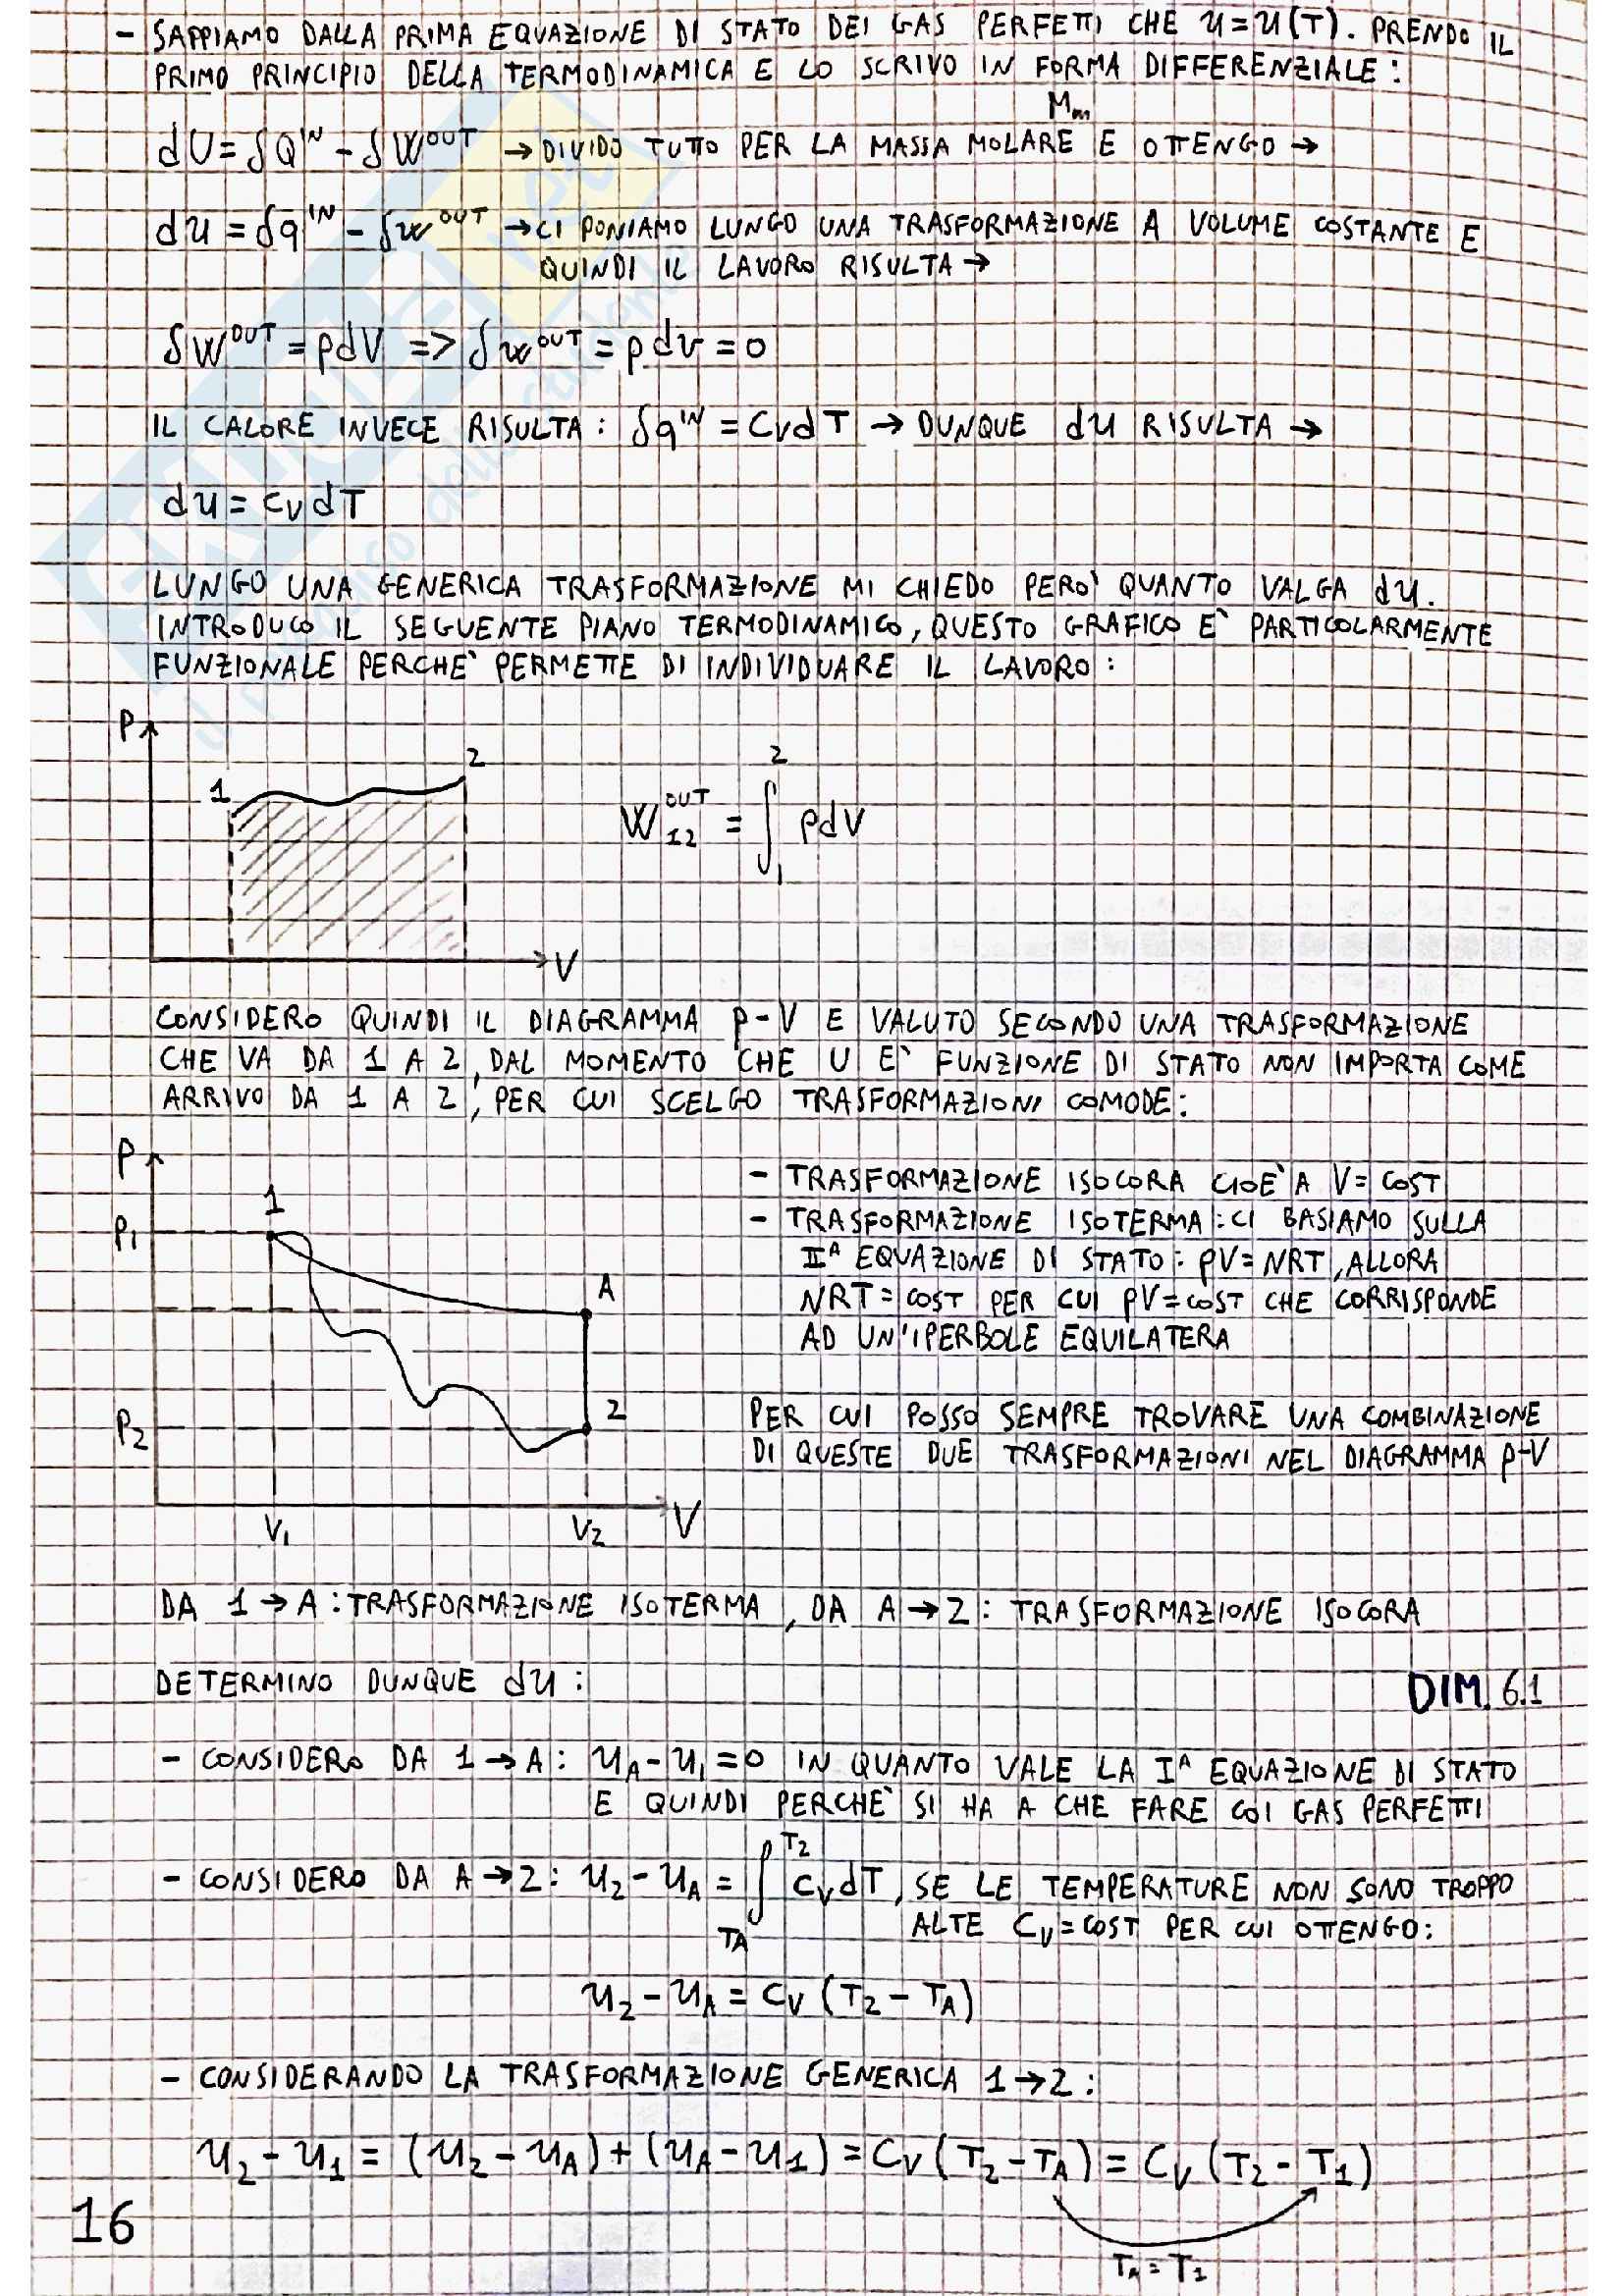 - SAPPIAMO DALLA PRIMA EQUAZIONE DI STATO DEI GAS PERFETTI CHE u=u(T). PRENDO IL
PRIMO PRINCIPIO DELLA TERMODINAMICA E LO SCRIVO IN FORMA DIFFERENZIALE:
Mm
dU = δQ^IN - δW^OUT → DIVIDO TUTTO PER LA MASSA MOLARE E OTTENGO →
du = δq^IN - δw^OUT → CI PONIAMO LUNGO UNA TRASFORMAZIONE A VOLUME COSTANTE E
QUINDI IL LAVORO RISULTA →
δW^OUT = pdV => δw^OUT = pdv = 0
IL CALORE INVECE RISULTA: δq^IN = CvdT → DUNQUE du RISULTA →
du = cvdT
LUNGO UNA GENERICA TRASFORMAZIONE MI CHIEDO PERO' QUANTO VALGA du.
INTRODUCO IL SEGUENTE PIANO TERMODINAMICO, QUESTO GRAFICO E' PARTICOLARMENTE
FUNZIONALE PERCHE' PERMETTE DI INDIVIDUARE IL LAVORO:
P
1
2
V
W12^OUT = ∫₁² pdV
CONSIDERO QUINDI IL DIAGRAMMA p-V E VALUTO SECONDO UNA TRASFORMAZIONE
CHE VA DA 1 A 2, DAL MOMENTO CHE U E' FUNZIONE DI STATO NON IMPORTA COME
ARRIVO DA 1 A 2, PER CUI SCELGO TRASFORMAZIONI COMODE:
P
1
P1
A
2
P2
V1
V2
V
- TRASFORMAZIONE ISOCORA CIOE' A V = COST
- TRASFORMAZIONE ISOTERMA: CI BASIAMO SULLA
IIª EQUAZIONE DI STATO: pV=NRT, ALLORA
NRT = COST PER CUI pV=COST CHE CORRISPONDE
AD UN'IPERBOLE EQUILATERA
PER CUI POSSO SEMPRE TROVARE UNA COMBINAZIONE
DI QUESTE DUE TRASFORMAZIONI NEL DIAGRAMMA p-V
DA 1 → A: TRASFORMAZIONE ISOTERMA, DA A → 2: TRASFORMAZIONE ISOCORA
DETERMINO DUNQUE du:
DIM. 6.1
- CONSIDERO DA 1 → A: uA - u1 = 0 IN QUANTO VALE LA Iª EQUAZIONE DI STATO
E QUINDI PERCHE' SI HA A CHE FARE COI GAS PERFETTI
- CONSIDERO DA A → 2: u2 - uA = ∫_TA^T2 cvdT, SE LE TEMPERATURE NON SONO TROPPO
ALTE Cv = COST PER CUI OTTENGO:
u2 - uA = cv (T2 - TA)
- CONSIDERANDO LA TRASFORMAZIONE GENERICA 1 → 2:
u2 - u1 = (u2 - uA) + (uA - u1) = Cv (T2 - TA) = Cv (T2 - T1)
TA = T1
16